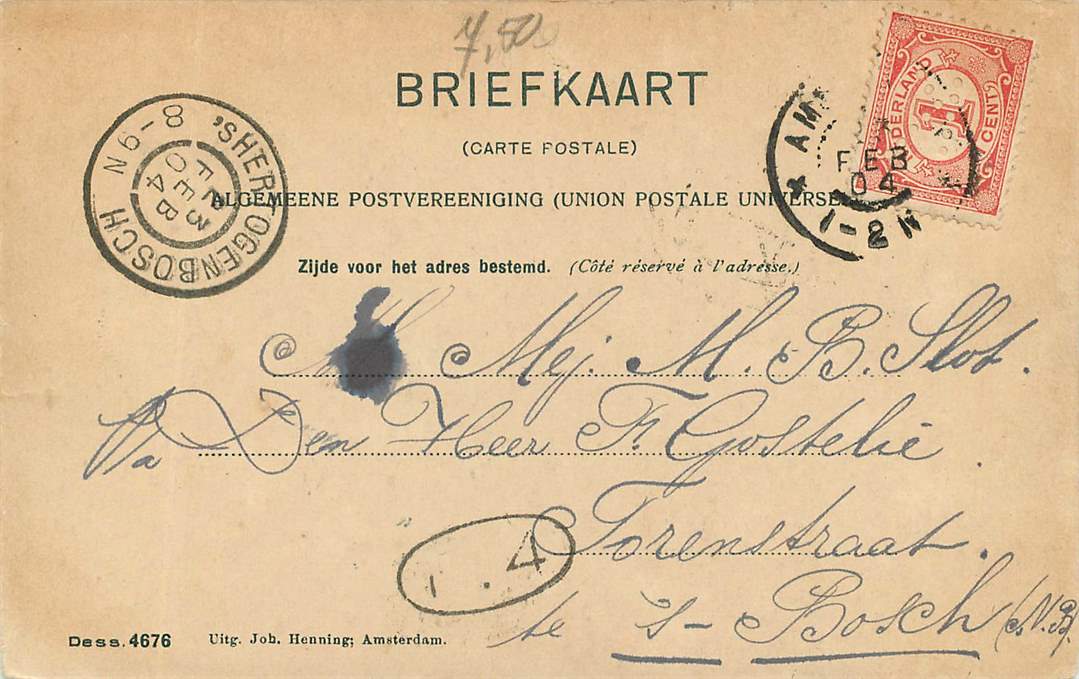 7,50
BRIEFKAART
(CARTE POSTALE)
ALGEMEENE POSTVEREENIGING (UNION POSTALE UNIVERSE
Zijde voor het adres bestemd. (Côté réservé à l'adresse.)
'SHERTOGENBOSCH
8-9N
FEB
04
NEDERLAND
1
CENT
AM
FEB
04
1-2N
Mej. M. B. Slot.
P/a Den Heer F. Gostelie
Torenstraat.
te 's-Bosch (N.B.)
1. 4
Dess. 4676 Uitg. Joh. Henning; Amsterdam.